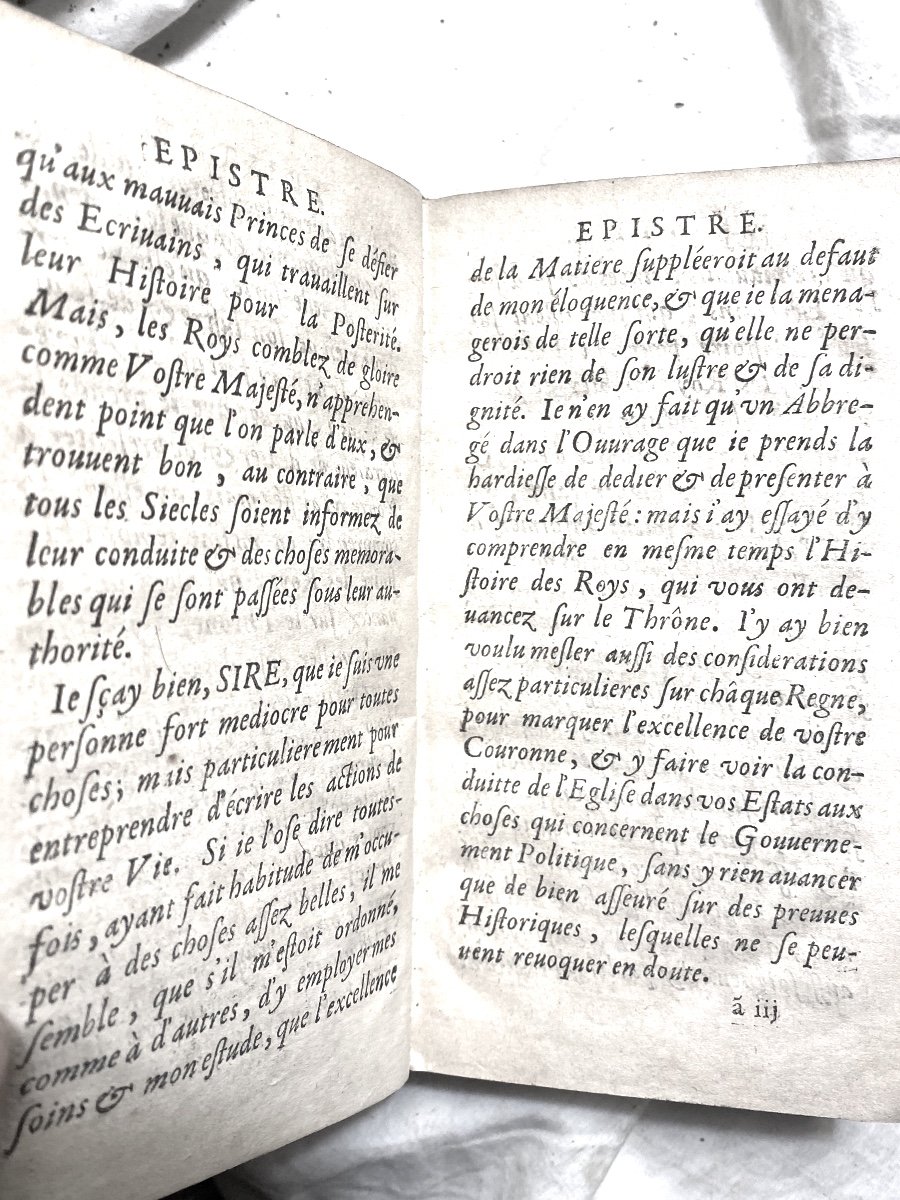 EPISTRE.
qu'aux mauuais Princes de ſe défier
des Ecriuains, qui trauaillent ſur
leur Hiſtoire pour la Poſterité.
Mais, les Roys comblez de gloire
comme Voſtre Majeſté, n'apprehen-
dent point que l'on parle d'eux, &
trouuent bon, au contraire, que
tous les Siecles ſoient informez de
leur conduite & des choſes memora-
bles qui ſe ſont paſſées ſous leur au-
thorité.
Ie ſçay bien, SIRE, que ie ſuis vne
perſonne fort mediocre pour toutes
choſes; mais particulierement pour
entreprendre d'écrire les actions de
voſtre Vie. Si ie l'oſe dire toutes-
fois, ayant fait habitude de m'occu-
per à des choſes aſſez belles, il me
ſemble, que s'il m'eſtoit ordonné,
comme à d'autres, d'y employer mes
ſoins & mon eſtude, que l'excellence
EPISTRE.
de la Matiere ſuppléeroit au defaut
de mon éloquence, & que ie la mena-
gerois de telle ſorte, qu'elle ne per-
droit rien de ſon luſtre & de ſa di-
gnité. Ie n'en ay fait qu'vn Abbre-
gé dans l'Ouurage que ie prends la
hardieſſe de dedier & de preſenter à
Voſtre Majeſté: mais i'ay eſſayé d'y
comprendre en meſme temps l'Hi-
ſtoire des Roys, qui vous ont de-
uancez ſur le Thrône. I'y ay bien
voulu meſler auſſi des conſiderations
aſſez particulieres ſur chaque Regne,
pour marquer l'excellence de voſtre
Couronne, & y faire voir la con-
duitte de l'Egliſe dans vos Eſtats aux
choſes qui concernent le Gouuerne-
ment Politique, ſans y rien auancer
que de bien aſſeuré ſur des preuues
Hiſtoriques, leſquelles ne ſe peu-
uent reuoquer en doute.
ã iij